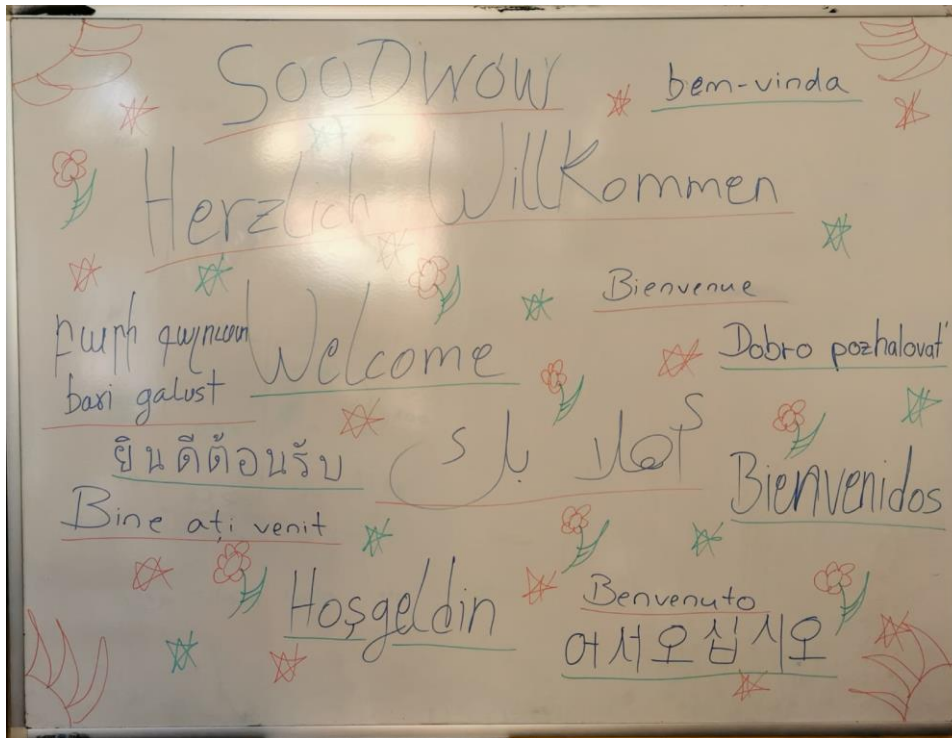 SooDwow
bem-vinda
Herzlich Willkommen
Bienvenue
Բարի գալուստ
Welcome
Dobro pozhalovat'
bari galust
ยินดีต้อนรับ
أهلا بك
Bienvenidos
Bine ați venit
Hoşgeldin
Benvenuto
어서오십시오